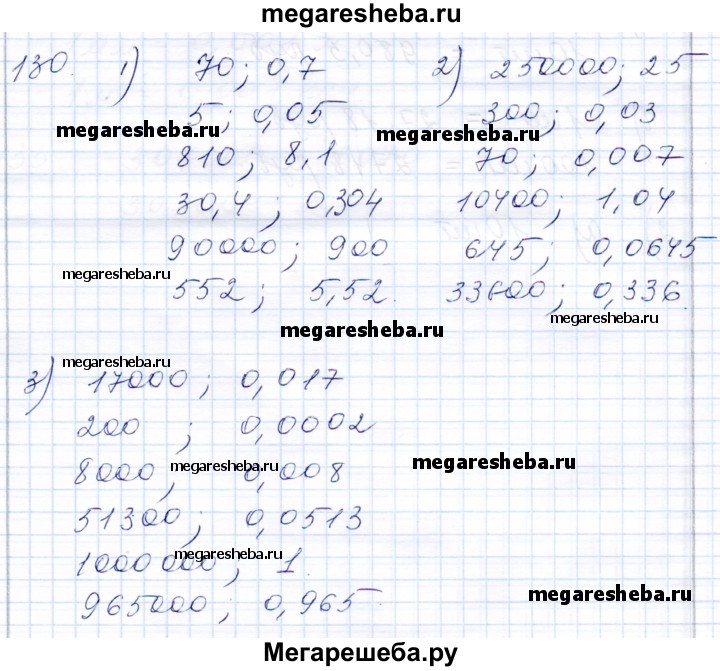 megaresheba.ru
130. 1) 70; 0,7 2) 250000; 25
5; 0,05 300; 0,03
megaresheba.ru megaresheba.ru
810; 8,1 70; 0,007
30,4; 0,304 10400; 1,04
90000; 900 645; 0,0645
megaresheba.ru
552; 5,52. 33600; 0,336
megaresheba.ru
megaresheba.ru
megaresheba.ru
3) 17000; 0,017
megaresheba.ru
200; 0,0002
8000; 0,008
megaresheba.ru megaresheba.ru
51300; 0,0513
megaresheba.ru
1000000; 1.
965000; 0,965.
megaresheba.ru
Мегарешеба.ру